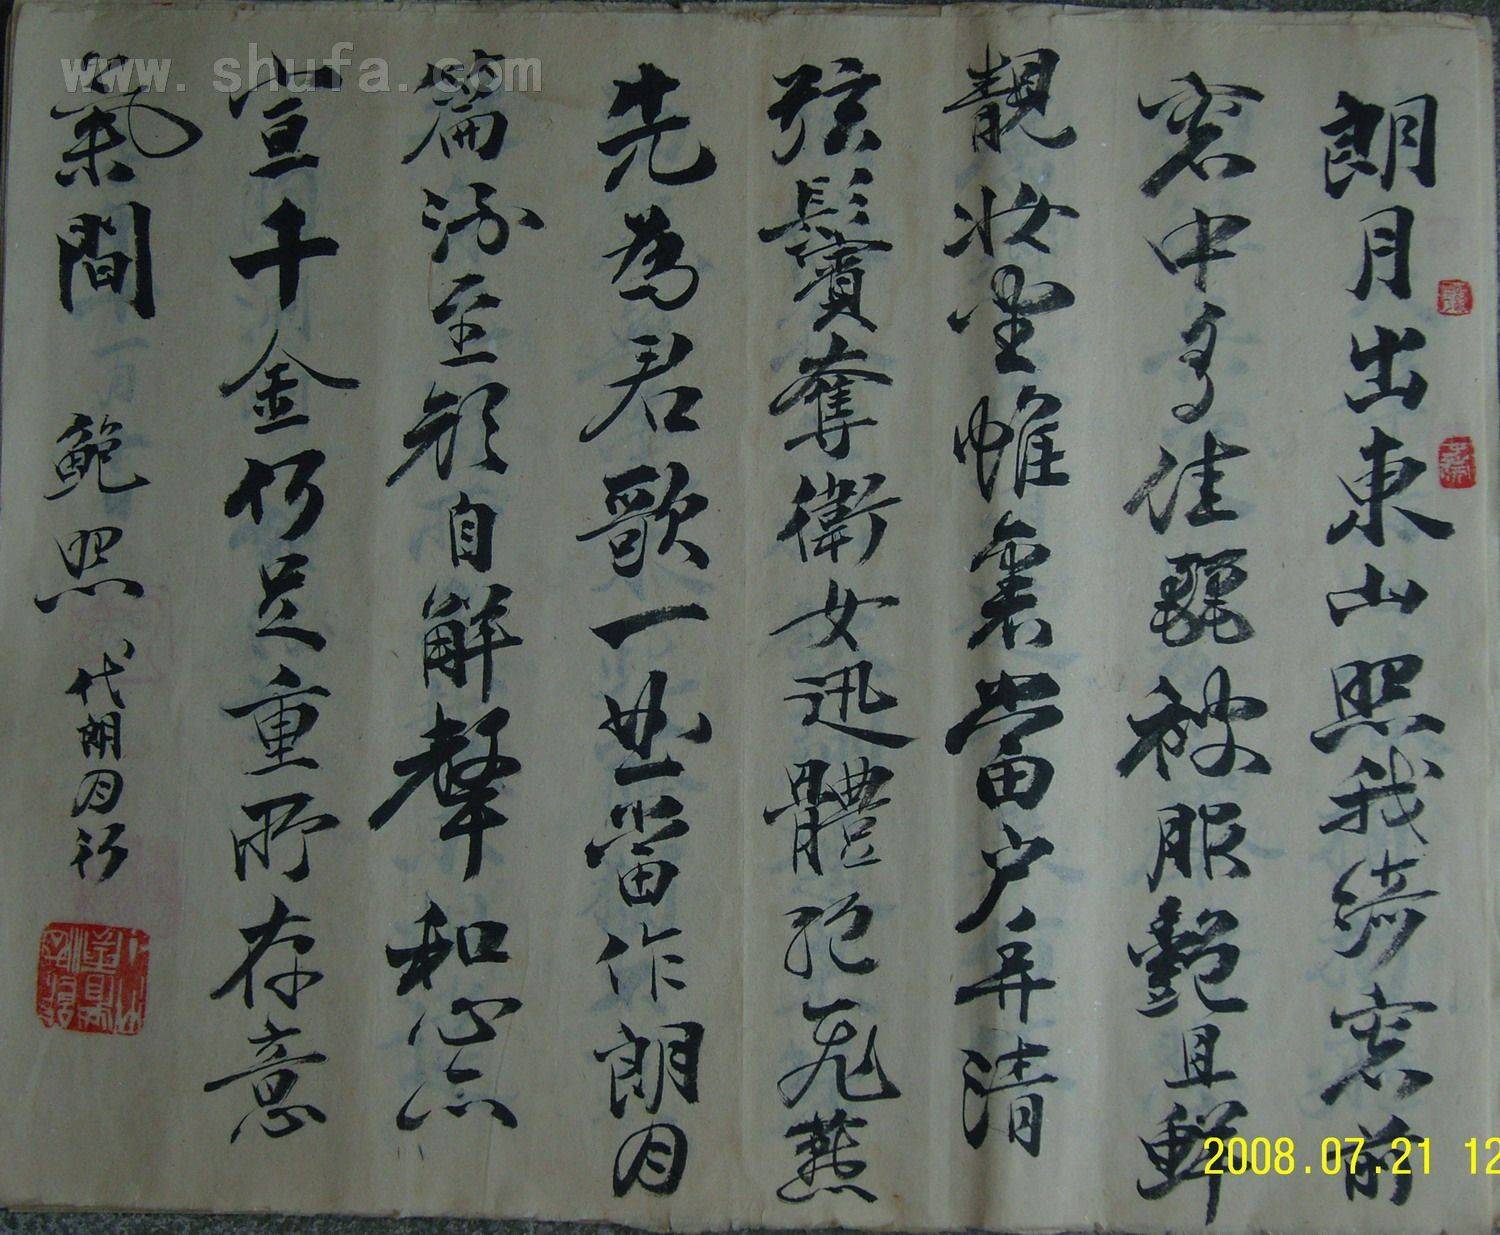 朗月出東山照我綺窓前
窓中多佳麗被服艷且鮮
靚妝坐帷裏當户弄清
弦鬢奪衛女迅體絕飛燕
先為君歌一曲當作朗月
篇酒至顏自解聲和心亦
宣千金何足重所存意
氣間 鮑照 代朗月行
www.shufa.com
2008.07.21 12